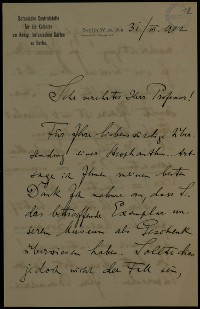 Botanische Centralstelle
für die Kolonien
am Königl. botanischen Garten
zu Berlin.
Berlin W. den 31/III. 1902
12
Sehr verehrter Herr Professor!
Für Ihre liebenswürdige Über
sendung einer Art
sage ich Ihnen meinen besten
Dank. Ich nehme an, dass S.
das betreffende Exemplar un
serem Museum als Geschenk
überwiesen haben. Sollte dies
jedoch nicht der Fall sein,